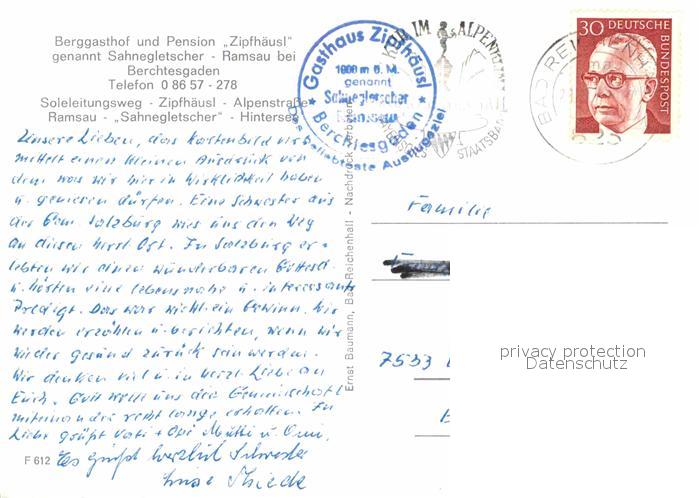 Berggasthof und Pension „Zipfhäusl"
genannt Sahnegletscher - Ramsau bei
Berchtesgaden
Telefon 0 86 57 - 278
Soleleitungsweg - Zipfhäusl - Alpenstraße
Ramsau - „Sahnegletscher" - Hintersee
Gasthaus Zipfhäusl
1000 m ü. M.
genannt
Sahnegletscher
Ramsau
Berchtesgaden
Das beliebteste Ausflugsziel
IM ALPEN
STAATSBAD
BAD REICHENH
30 DEUTSCHE
BUNDESPOST
Unsere Lieben, das Kartenbild ver
mittelt einen kleinen Ausdruck von
dem was wir hier in Wirklichkeit haben
u. geniesen dürfen. Eine Schwester aus
der Gem. Salzburg wies uns den Weg
an diesen herrl. Ort. In Salzburg er-
lebten wir einen wunderbaren Gottesd.
u. hörten eine lebensnahe u. interessante
Predigt. Das war wirkl. ein Gewinn. Wir
werden erzählen u. berichten, wenn wir
wieder gesund zurück sein werden.
Wir denken viel u. in herzl. Liebe an
Euch. Gott wolle uns die Gemeinschaft
miteinander recht lange erhalten. In
Liebe grüßt Vati + Opi Mutti u. Omi.
Es grüßt herzlich Schwester
F 612
Ernst Baumann, Bad Reichenhall - Nachdruck verboten
Familie
7533
privacy protection
Datenschutz